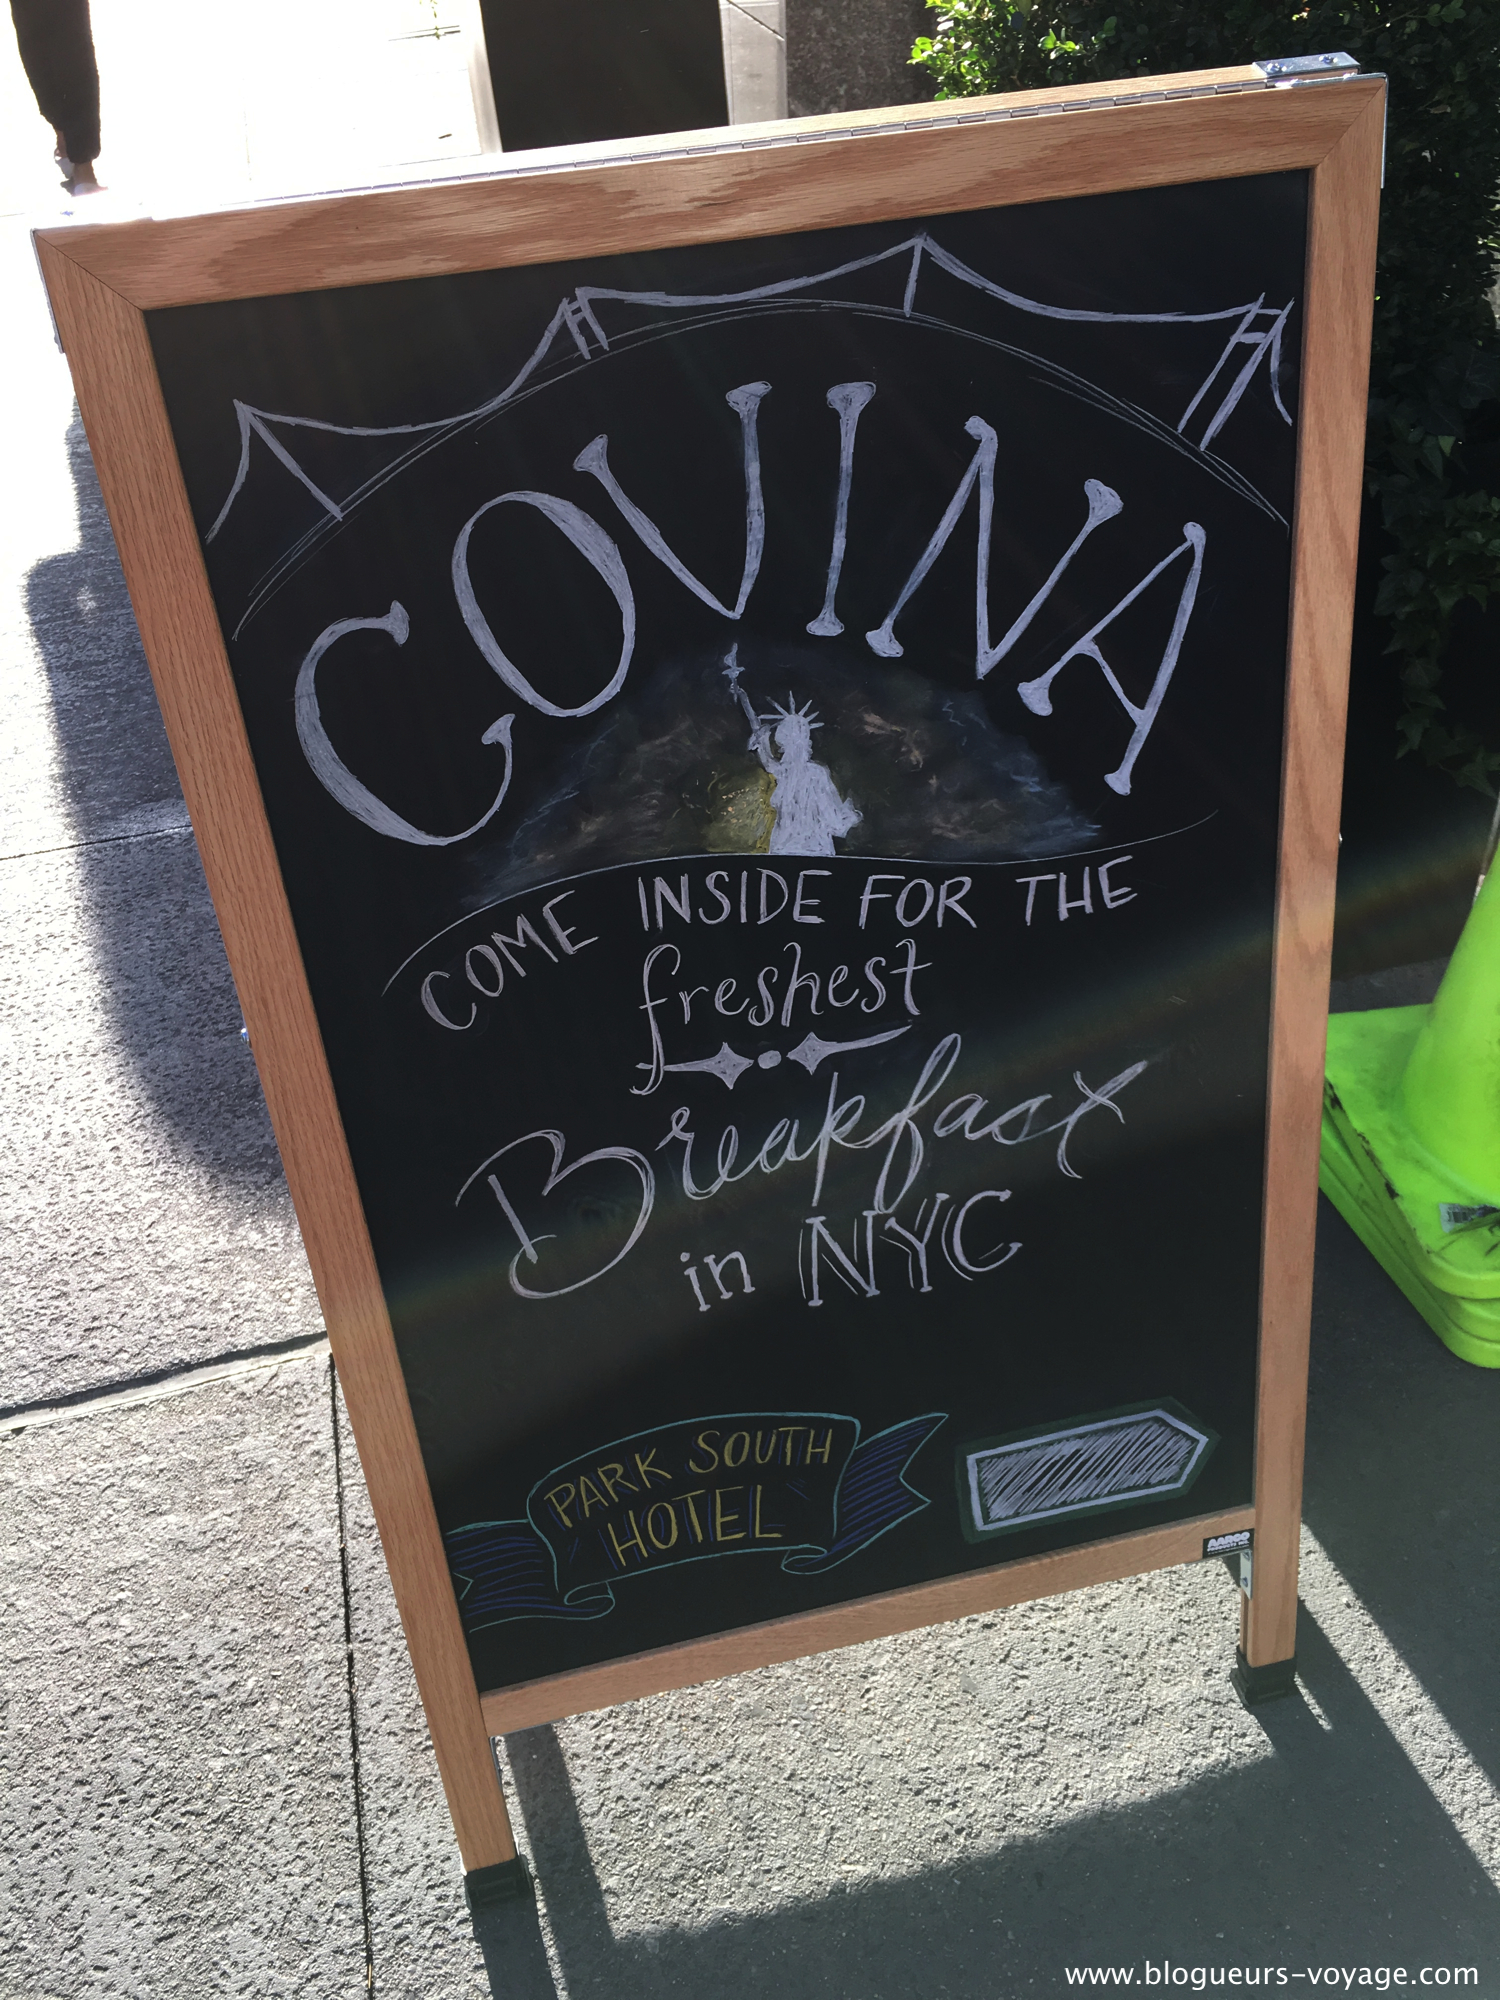 COVINA
COME INSIDE FOR THE
freshest
Breakfast
in NYC
PARK SOUTH
HOTEL
AARCO
PRODUCTS INC.
www.blogueurs-voyage.com